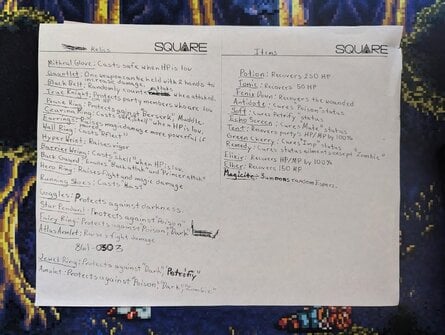 Relics
SQUARE
Mithril Glove: Casts safe when HP is low
Gauntlet: One weapon can be held with 2 hands to
increase damage.
Black Belt: Randomly counter when attacked.
True Knight: Protects party members who are low
on HP
Protects against "Berserk", Muddle.
when HP is low.
Earrings: Raises magic damage more powerful if
Wall Ring: Casts "Reflect"
Hyper Wrist: Raises vigor
Barrier Ring: Casts "Shell" when HP is low
Back Guard: Prevents "Back attack" and "Pincer attack"
Hero Ring: Raises Fight and magic damage
Running Shoes: Casts "Haste"
Goggles: Protects against darkness.
Star Pendant: Protects against "Poison"
Fairy Ring: Protects against "Poison", "Dark"
Atlas Armlet: Raises fight damage
861-0303
Jewel Ring: Protects against "Dark", "Petrify"
Amulet: Protects against "Poison", "Dark", "Zombie"
Items
SQUARE
Potion: Recovers 250 HP
Tonic: Recovers 50 HP
Fenix Down: Recovers the wounded
Antidote: cures "Poison" status
Soft: Cures "Petrify" status
Echo Screen: Cures "Mute" status
Tent: Recovers party's HP/MP by 100%
Green Cherry: Cures "Imp" status
Remedy: Cures status ailments except "Zombie"
Elixir: Recovers HP/MP by 100%
Magicite: Summons random Espers.